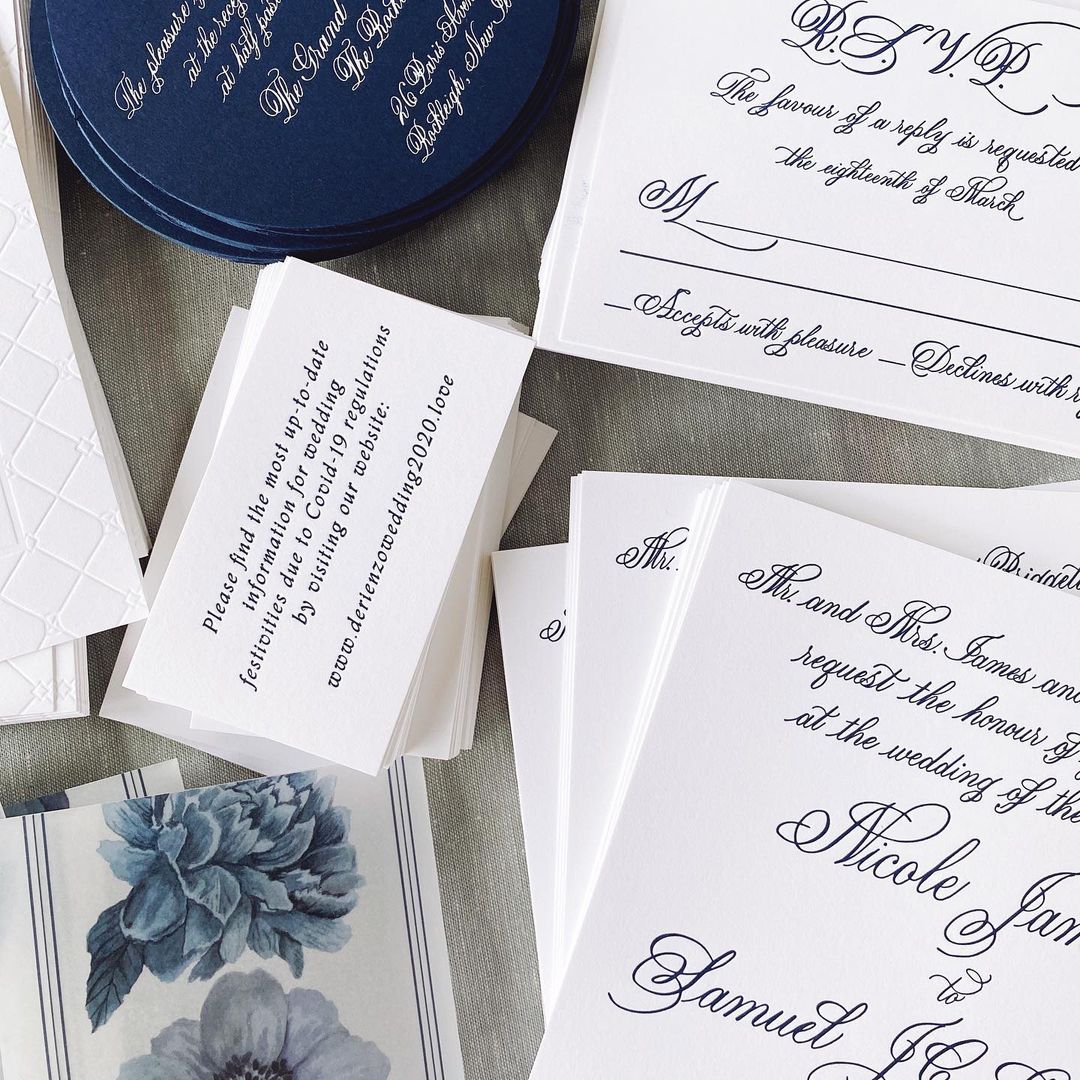 The pleasure
at the
at half
The Grand
The
26 Paris
Rockleigh, New
R.S.V.P.
The favour of a reply is requested
the eighteenth of March
M
Accepts with pleasure Declines with
Please find the most up-to-date
information for wedding
festivities due to Covid-19 regulations
by visiting our website:
www.derienzowedding2020.love
Mr.
Mr. and Mrs. James and
request the honour of
at the wedding of
Nicole
to
Samuel J.C.